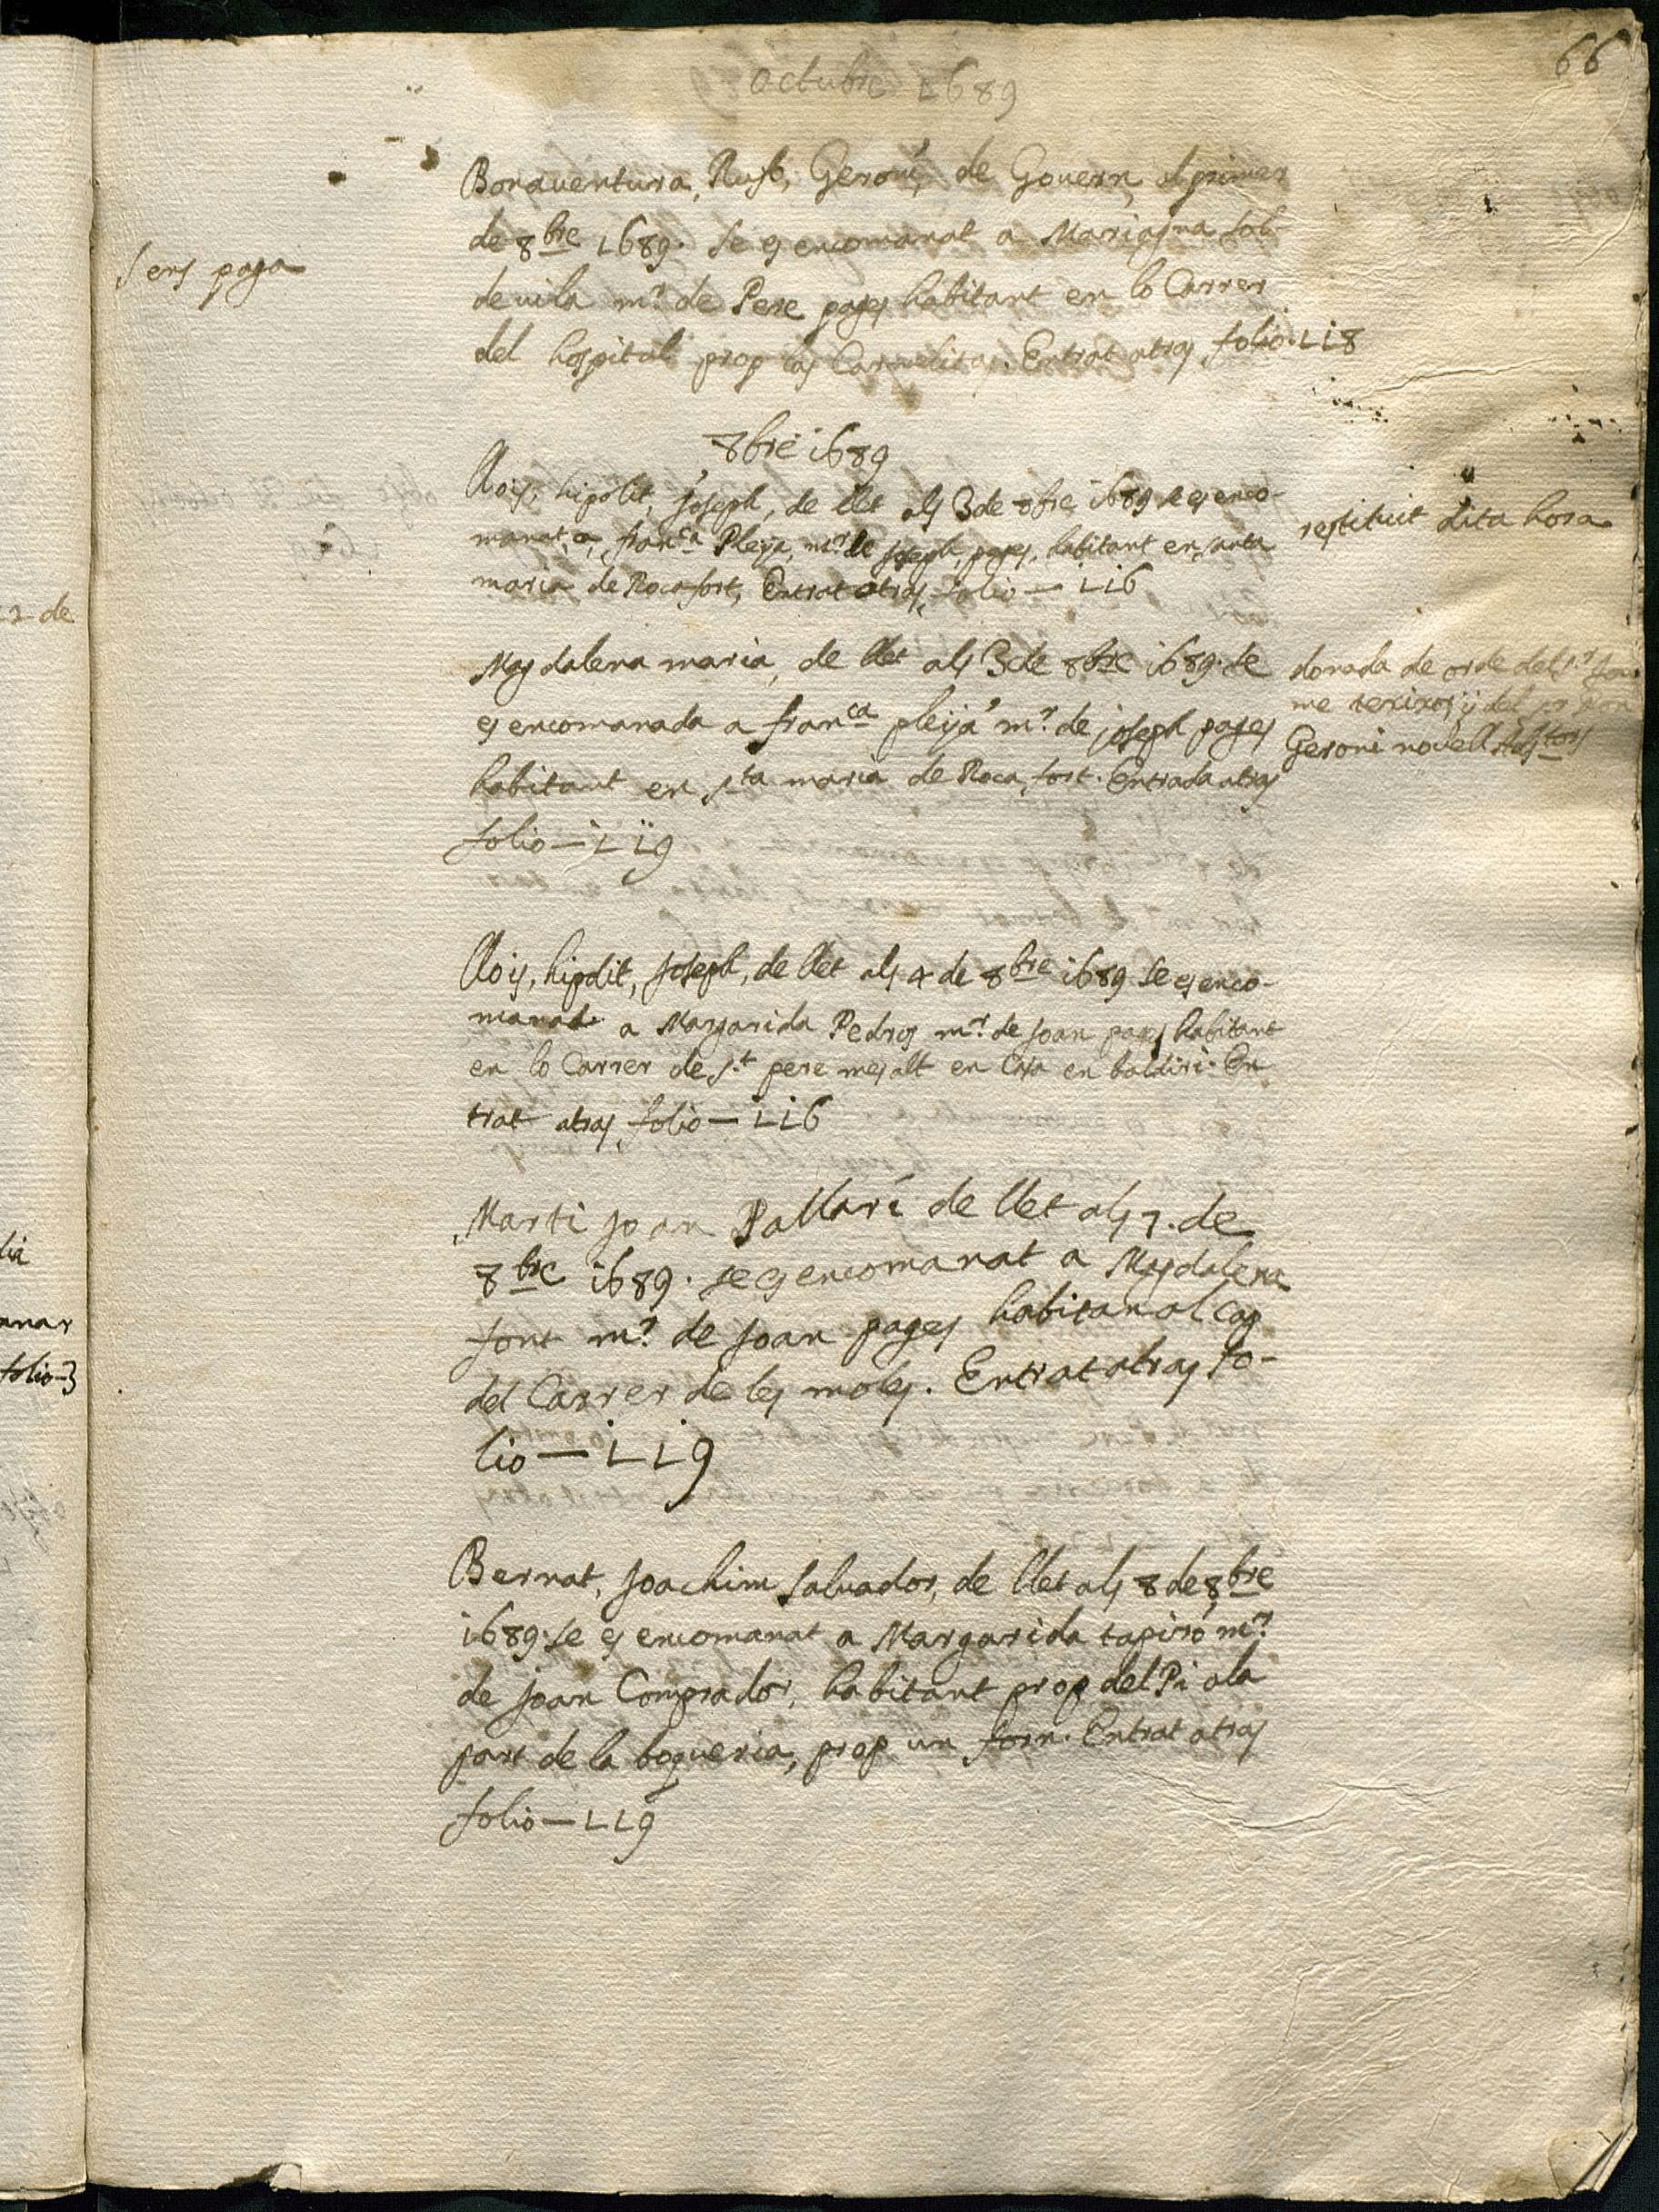 66
octubre 1689
Bonaventura, Rufo, Geroni, de Govern, al primer
de 8bre 1689. se es encomanat a Mariagna Sal-
devila mr de Pere pages habitant en lo Carrer
del hospital prop las Carmelitas. Entrat atras folio. 118
Sens paga
8bre 1689
Alois, hipolit, Joseph, de llet als 3 de 8bre 1689 se es enco-
manat, a, franca Pleija, mr de Joseph, pages, habitant en santa
maria de Rocafort, Entrat atras, folio — 116
restituit dita hora
Magdalena maria, de llet als 3 de 8bre 1689. se
es encomanada a franca pleija mr. de joseph pages
habitant en sta maria de Roca fort. Entrada atras
folio — 119
donada de orde del sr Jau
me y del sr
Geroni novell
Alois, hipolit, Joseph, de llet als 4 de 8bre 1689 se es enco-
manat a Margarida Pedros mr. de Joan pages habitant
en lo Carrer de st pere mes alt en Casa en baldiri. En
trat atras folio — 116
Marti Joan Pallari de llet als 7. de
8bre 1689. se es encomanat a Magdalena
font mr. de Joan pages habitan al cap
del Carrer de les moles. Entrat atras fo-
lio — 119
Bernat, Joachim Salvador, de llet als 8 de 8bre
1689. se es encomanat a Margarida tapiró mr.
de Joan Comprador, habitant prop del Pi a la
part de la boqueria, prop un forn. Entrat atras
folio — 119